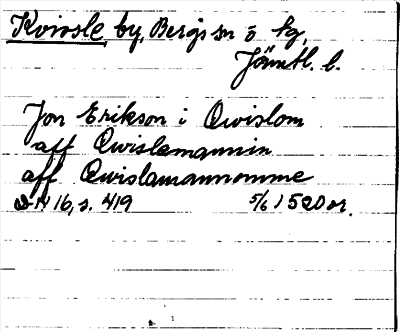 Kvissle by, Bergs sn o kg,
Jämtl. l.
Jon Erikson i Qwislom
aff Qwislamannin
aff Qwislamannomme
DN 16, s. 419 5/6 1520 or.